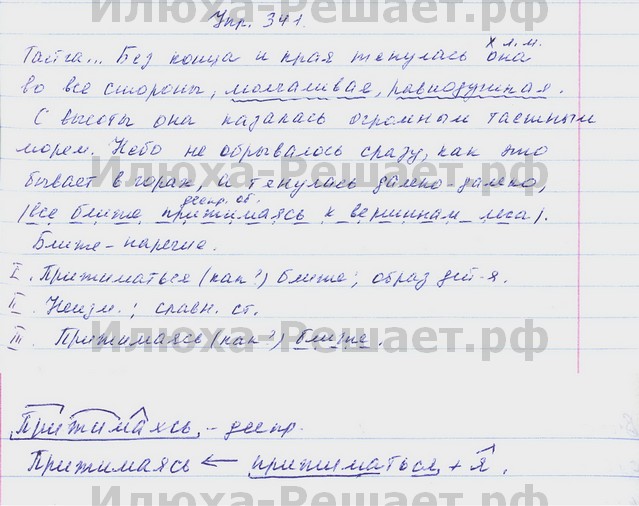 Илюха-Решает.рф
Упр. 341.
х л. м.
Тайга... Без конца и края тянулась она
во все стороны, молчаливая, равнодушная.
С высоты она казалась огромным таёжным
морем. Небо не обрывалось сразу, как это
Илюха-Решает.рф
бывает в горах, а тянулась далеко-далеко,
деепр. об.
(все ближе прижимаясь к вершинам леса).
Ближе - наречие.
I. Прижиматься (как?) ближе; образ дей-я.
II. Неизм.; сравн. ст.
III. Прижимаясь (как?) ближе.
Илюха-Решает.рф
Прижимаясь, - деепр.
Прижимаясь ← прижиматься + я.
Илюха-Решает.рф